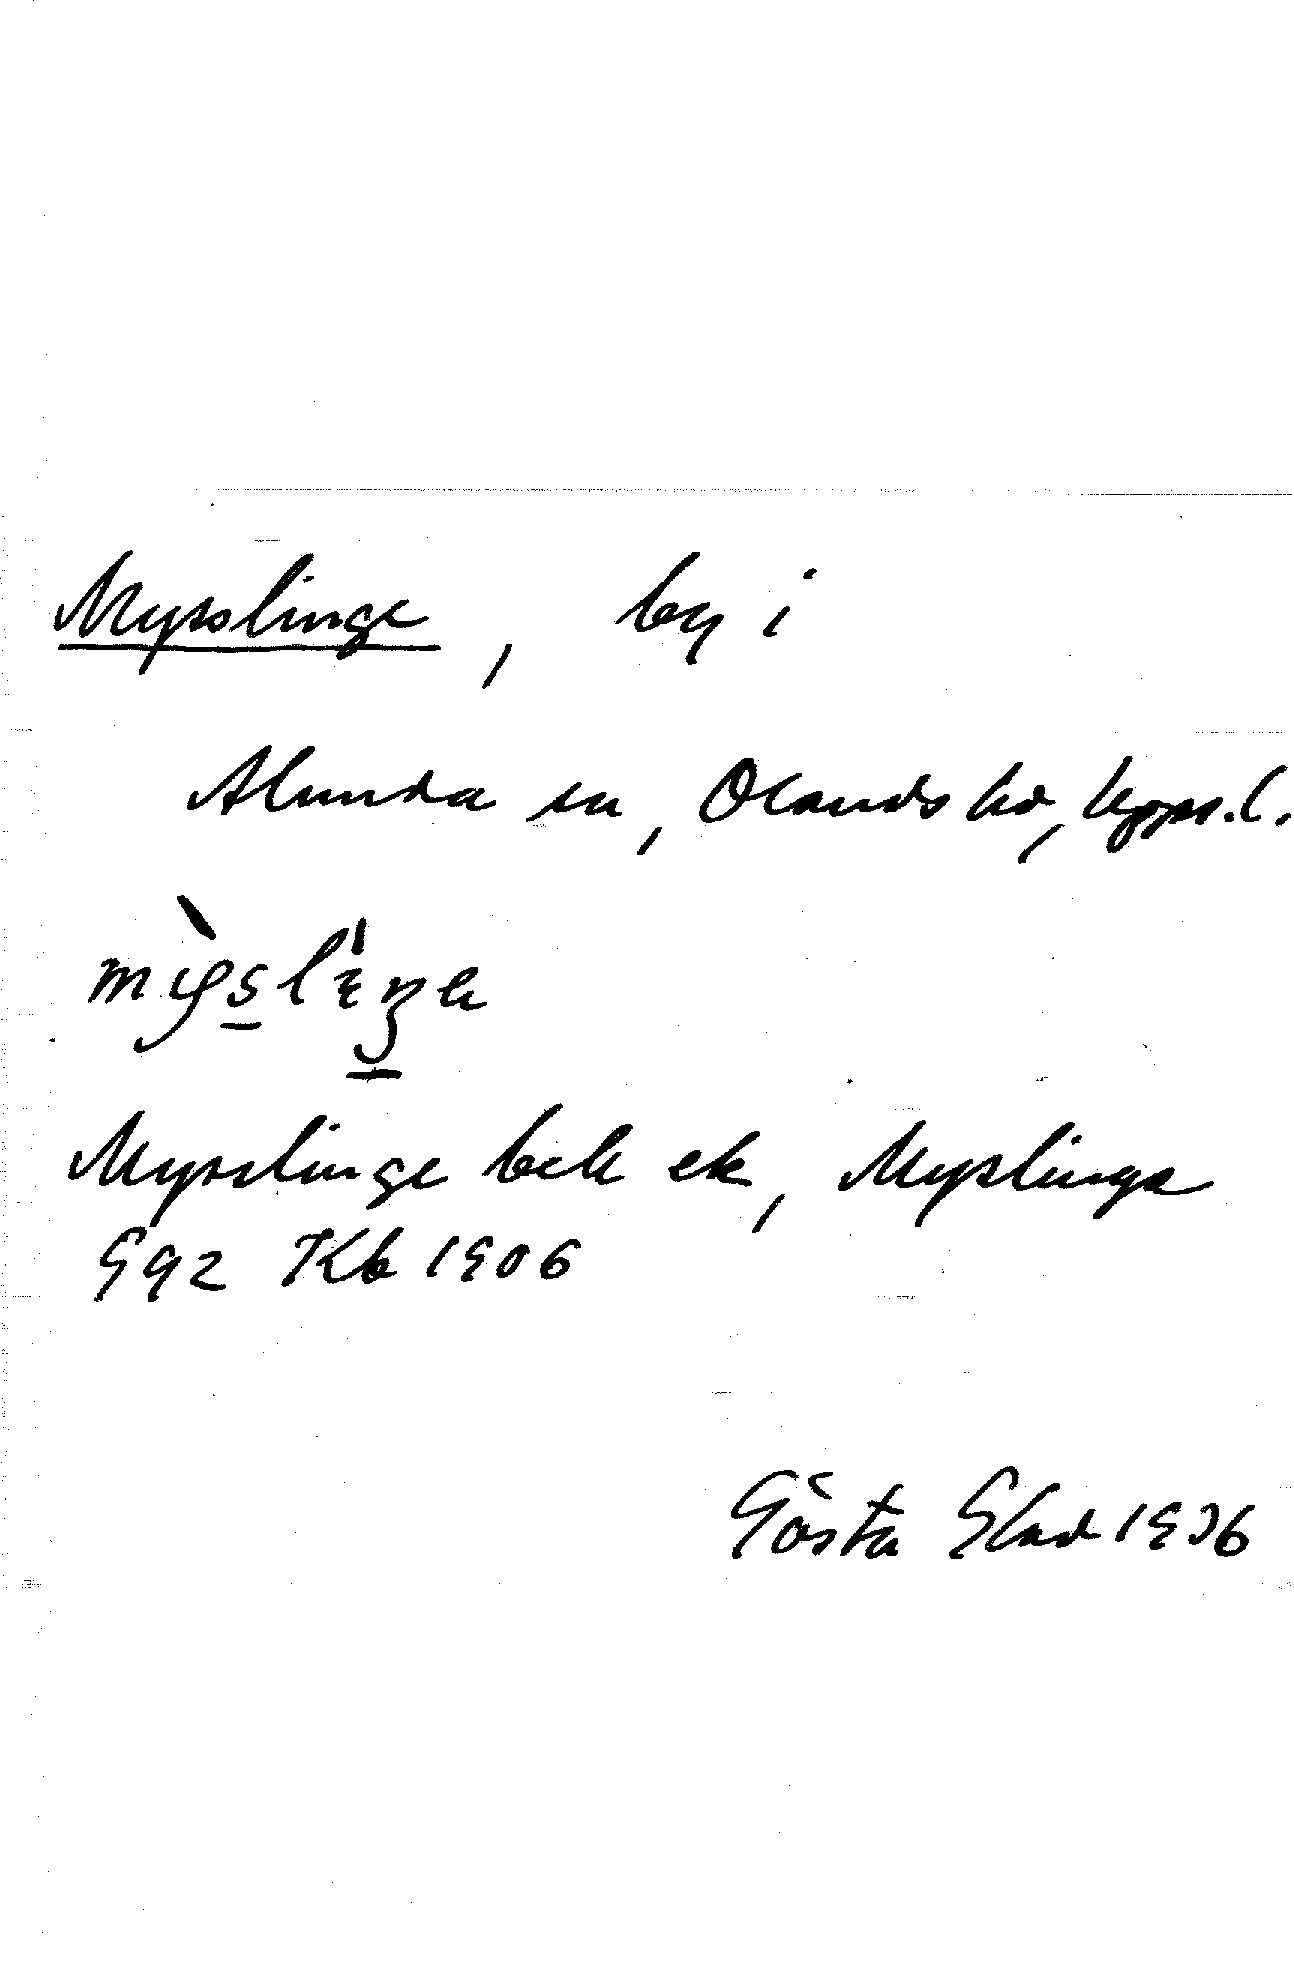 Mysslinge, by i
Alunda sn, Olands hd, Upps. l.
Mysslinge bek ek, Myslinga
992 Kb 1906
Gösta Elad 1936